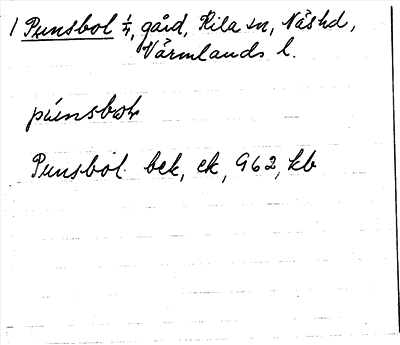 1 Punsbol 1/4, gård, Kila sn, Näshd,
Värmlands l.
Punsbol bek, ek, 962, kb